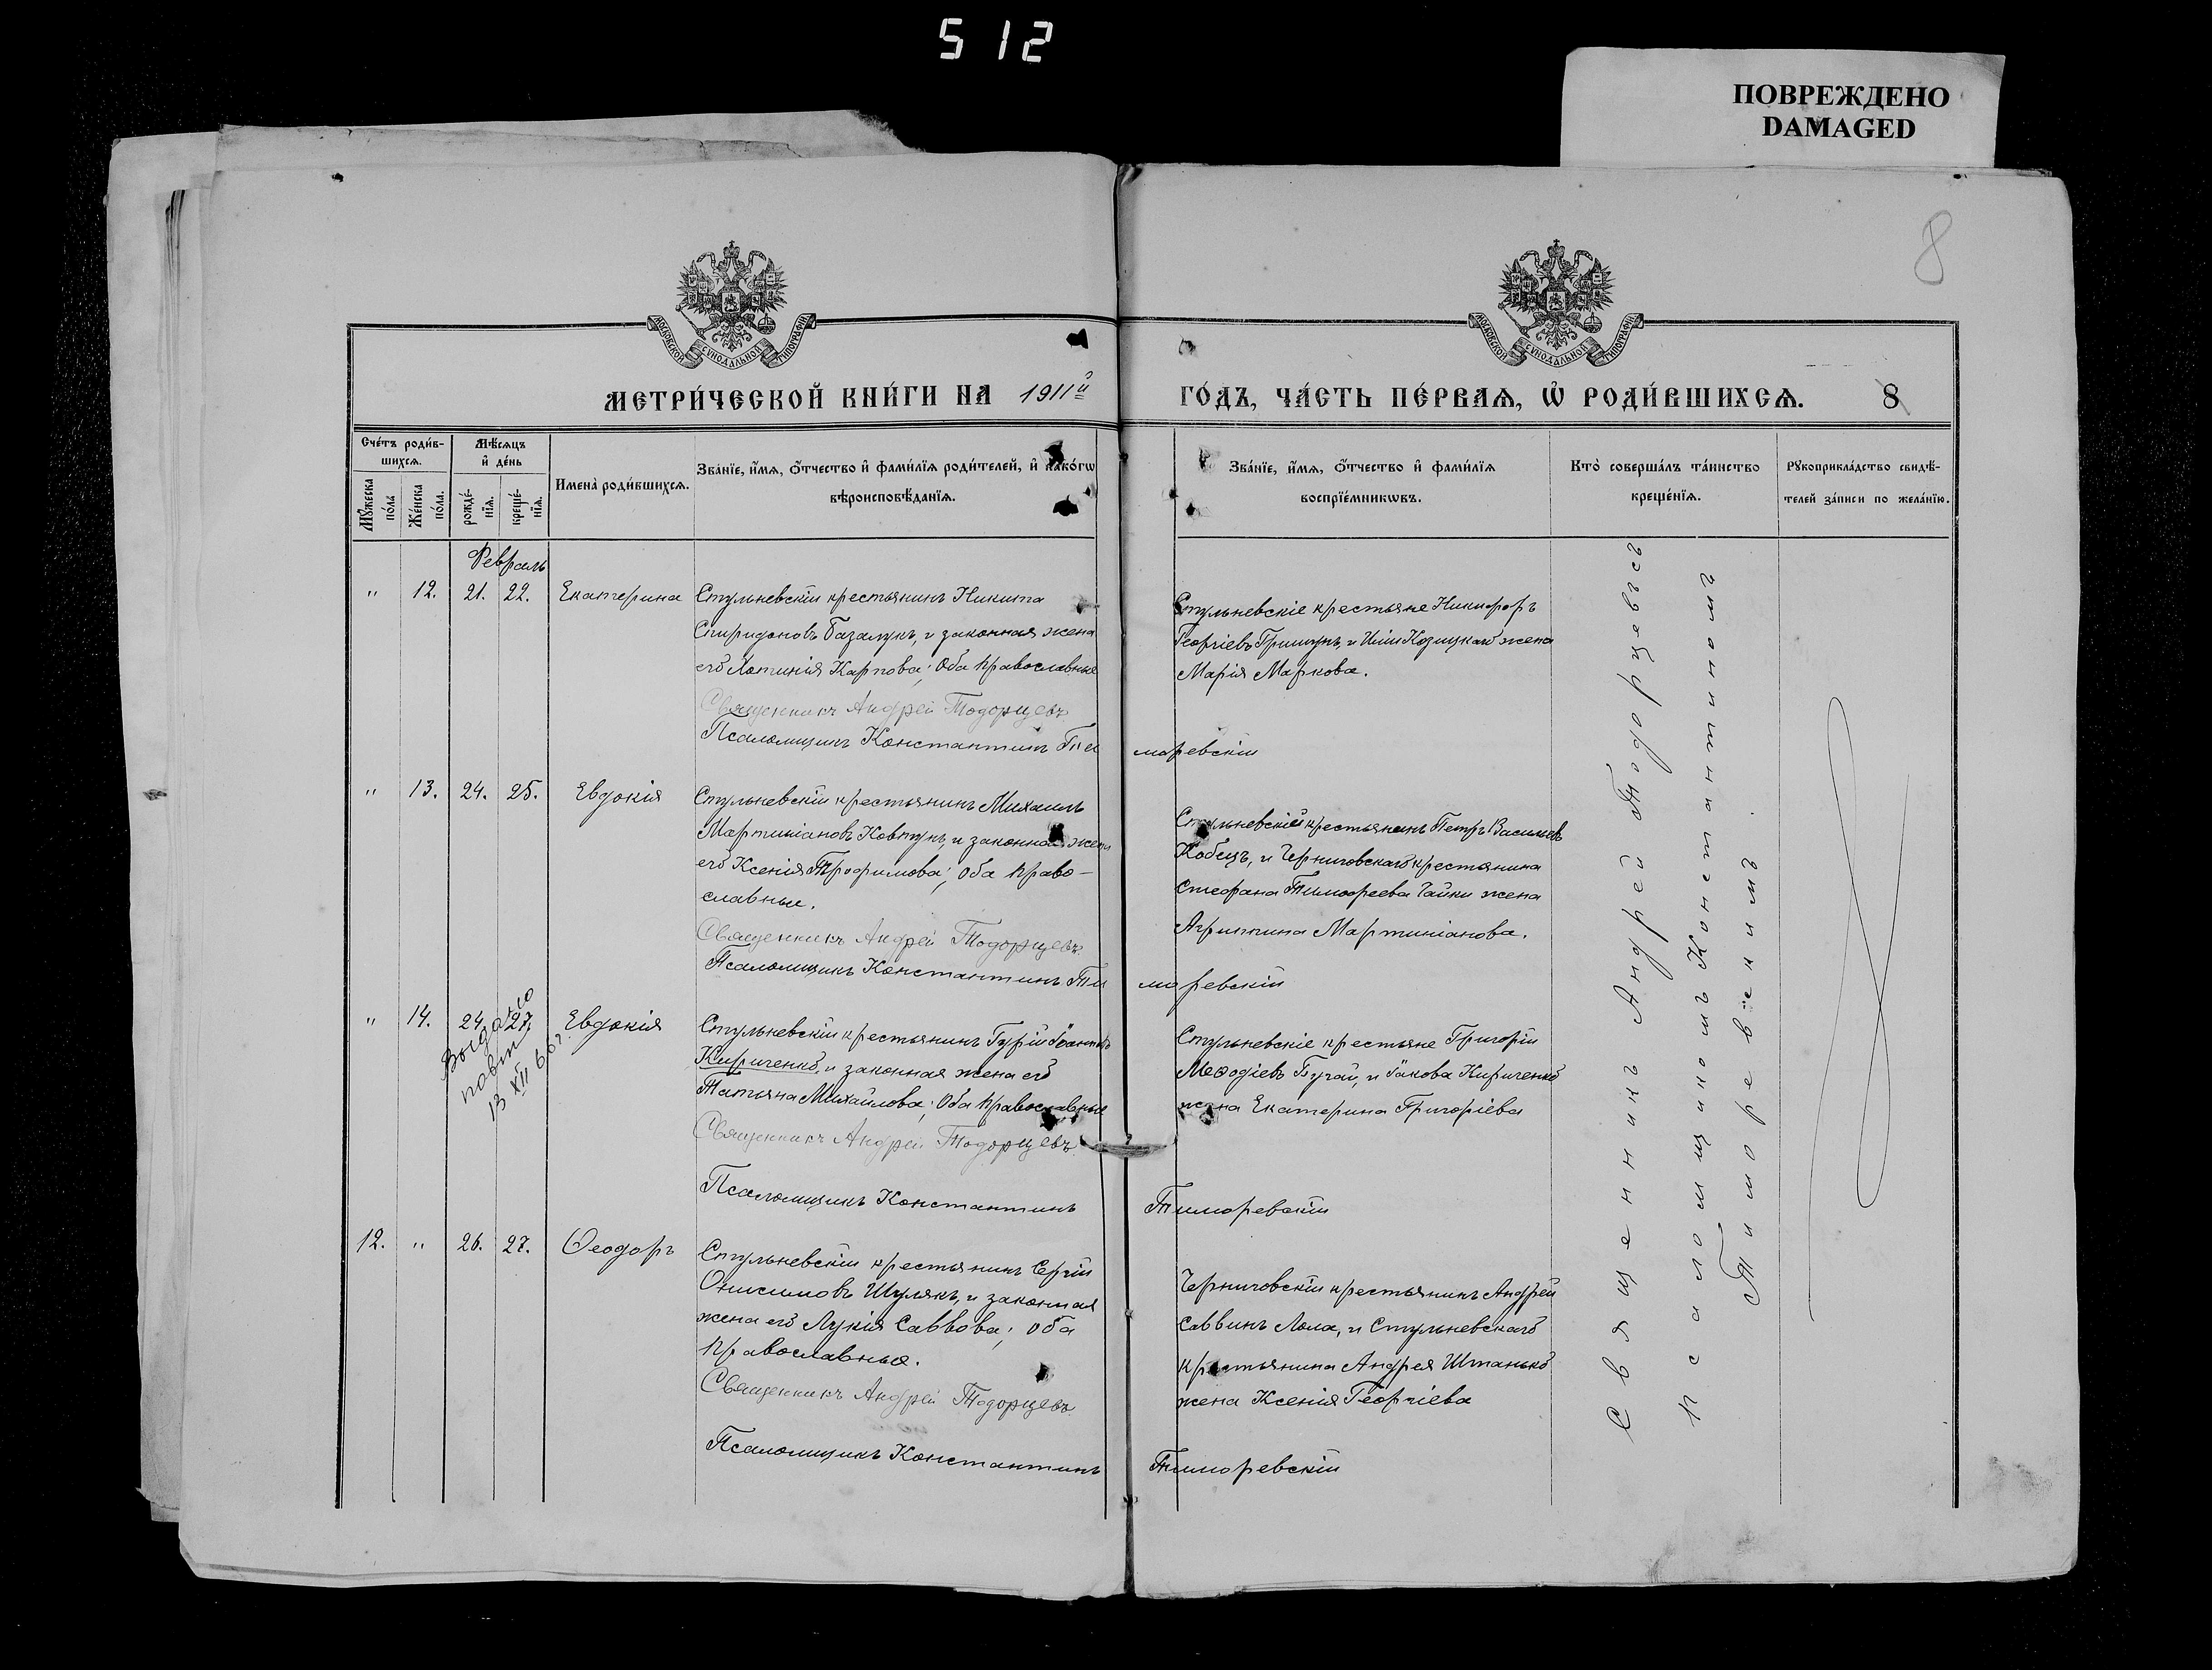 512
ПОВРЕЖДЕНО
DAMAGED
8
МОСКОВСКОЙ СУНОДАЛЬНОЙ ТИПОГРАФІИ
МОСКОВСКОЙ СУНОДАЛЬНОЙ ТИПОГРАФІИ
МЕТРИ́ЧЕСКОЙ КНИ́ГИ НА 1911й ГО́ДЪ, ЧА́СТЬ ПЕ́РВАѦ, Ѡ РОДИ́ВШИХСѦ. 8
Сче́тъ роди́в-
шихсѧ.
Мꙋ́жеска по́ла
Же́нска по́ла.
Мѣ́сѧцъ
и де́нь
рожде́-
нїѧ.
креще́-
нїѧ.
Имена̀ роди́вшихсѧ.
Зва́нїе, и́мѧ, о́тчество и фами́лїѧ роди́телей, и како́гѡ
вѣроисповѣ́данїѧ.
Зва́нїе, и́мѧ, о́тчество и фами́лїѧ
воспрїе́мникѡвъ.
Кто̀ соверша́лъ та́инство
креще́нїѧ.
Рꙋкоприкла́дство свидѣ́-
телей за́писи по жела́нїю.
Февраль
" 12. 21. 22. Екатерина
Стульневскій крестьянинъ Никита
Спиридоновъ Базалукъ, и законная жена
его Фотинія Карпова; Оба православные
Священникъ Андрей Тодорцевъ
Псаломщикъ Константинъ Тиморевскій
Стульневскіе крестьяне Никифоръ
Георгіевъ Гришунъ, и Иліи Козицкаго жена
Марія Маркова.
" 13. 24. 25. Евдокія
Стульневскій крестьянинъ Михаилъ
Мартиніановъ Ковтунъ, и законная жена
его Ксенія Трофимова; Оба право-
славные.
Священникъ Андрей Тодорцевъ
Псаломщикъ Константинъ Тиморевскій
Стульневскій крестьянинъ Петръ Васильевъ
Кобецъ, и Черниговскаго крестьянина
Стефана Тимофеева Чайки жена
Агриппина Мартиніанова.
" 14. 24. 27. Евдокія
Выдано
13 XII 66 г.
Стульневскій крестьянинъ Гурій Іоанновъ
Кириченко, и законная жена его
Татьяна Михайлова; Оба православные
Священникъ Андрей Тодорцевъ
Псаломщикъ Константинъ Тиморевскій
Стульневскіе крестьяне Григорій
Меѳодіевъ Бугай, и Іакова Кириченко
жена Екатерина Григоріева
12. " 26. 27. Ѳеодоръ
Стульневскій крестьянинъ Сергій
Онисимовъ Шулякъ, и законная
жена его Лукія Саввова; Оба
православные.
Священникъ Андрей Тодорцевъ
Псаломщикъ Константинъ Тиморевскій
Черниговскій крестьянинъ Андрей
Саввинъ Лола, и Стульневскаго
крестьянина Андрея Штанько
жена Ксенія Георгіева
Священникъ Андрей Тодорцевъ съ
псаломщикомъ Константиномъ
Тиморевскимъ.